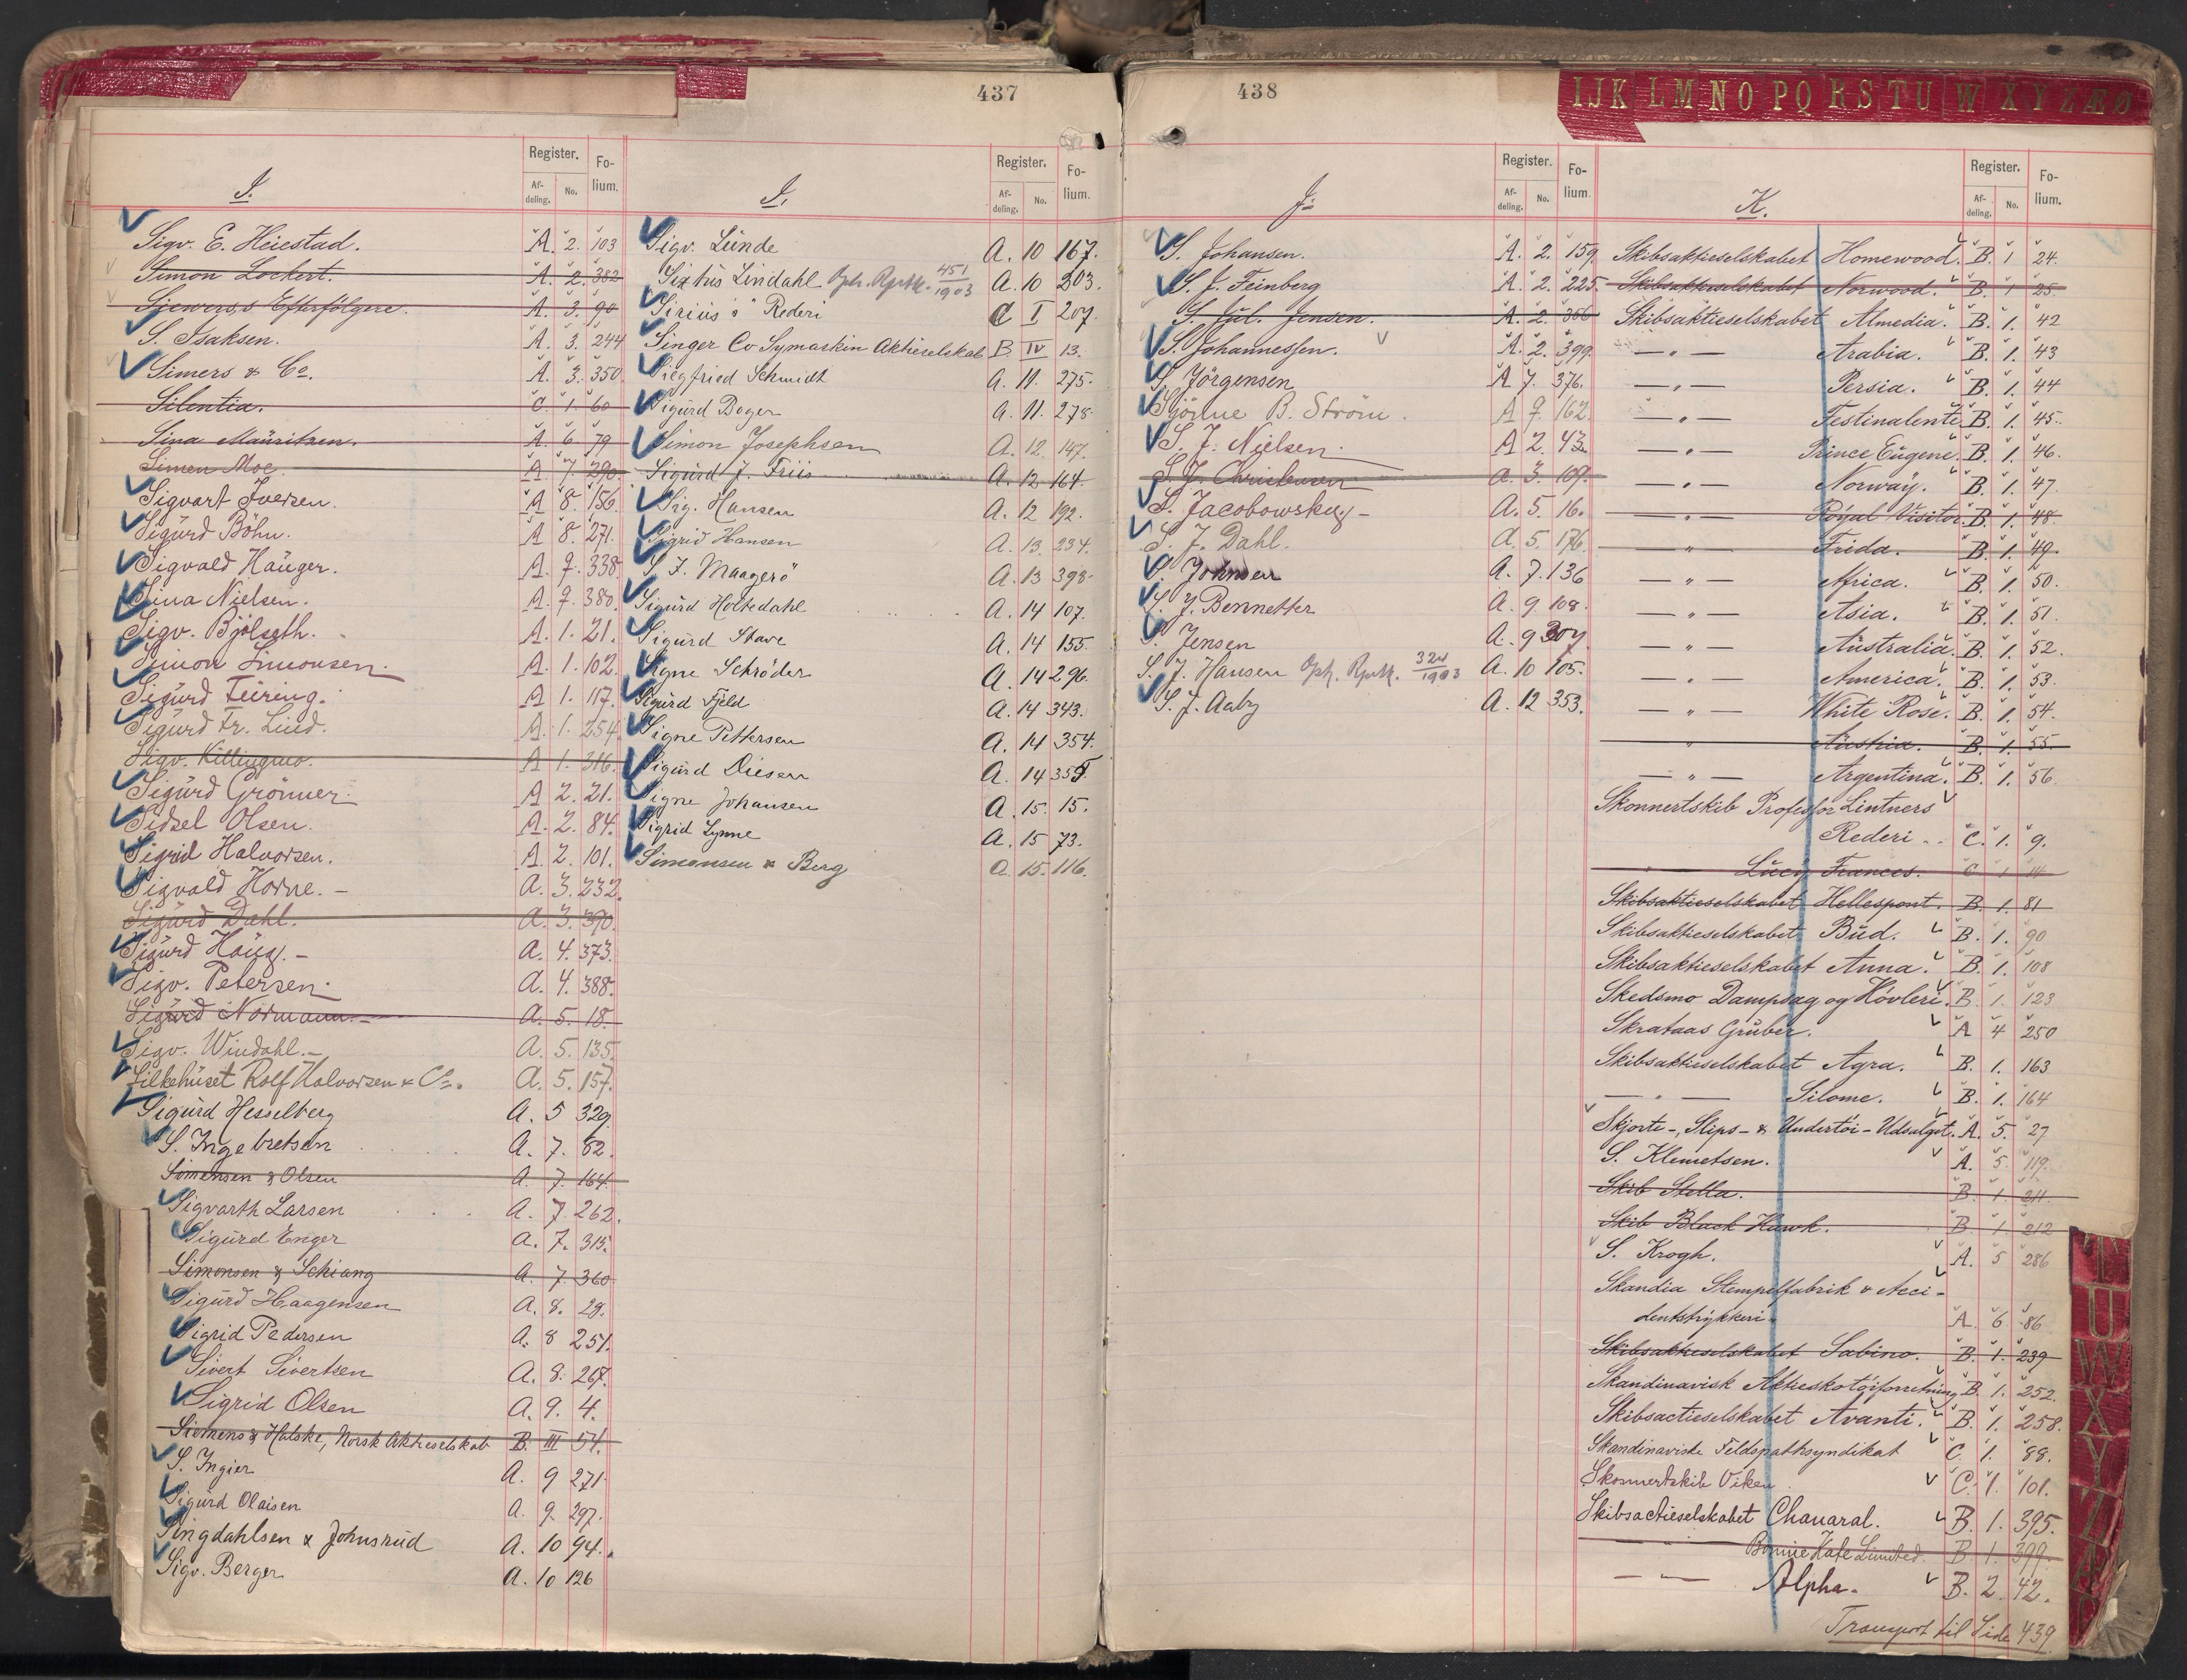 437
I.
Register.
Fo-
lium.
Af-
deling.
No.
Sigv. E. Heiestad. A. 2. 103
Simon Lockert. A. 2. 382
Sjewers,s Efterfölgere. A. 3. 90
S. Isaksen. A. 3. 244
Simers & Co. A. 3. 350
Silentia. C. 1. 60
Sina Mauritzen. A. 6 79
Simen Moe. A 7 290
Sigvart Iversen. A 8. 156
Sigurd Böhn. A 8. 271.
Sigvald Hauger. A. 7. 338
Sina Nielsen. A. 7. 380
Sigv. Bjölseth. A. 1. 21.
Simon Simonsen. A 1. 102
Sigurd Feiring. A 1. 117
Sigurd Fr. Lind. A 1. 254
Sigv. Killingmo. A 1. 316.
Sigurd Grönner. A 2. 21.
Sidsel Olsen. A. 2. 84.
Sigrid Halvorsen. A. 2. 101.
Sigvald Horne. - A. 3. 232
Sigurd Dahl. A. 3. 390.
Sigurd Haug. - A. 4. 373.
Sigv. Petersen. A. 4. 388.
Sigurd Normann. - A. 5. 18.
Sigv. Windahl. - A. 5. 135.
Silkehuset Rolf Halvorsen & Co. A. 5. 157.
Sigurd Hesselberg A. 5 329
S. Ingebretsen A. 7. 62.
Simensen & Olsen A. 7. 164.
Sigvarth Larsen A. 7. 262.
Sigurd Enger A. 7. 315.
Simonsen & Schiang A. 7. 360
Sigurd Haagensen A. 8. 29.
Sigrid Pedersen A. 8 251.
Sivert Sivertsen A. 8. 267.
Sigrid Olsen A. 9. 4.
Siemens & Halske, Norsk Aktieselskab B. III 54.
S. Ingier A. 9 271
Sigurd Olaisen A. 9. 297.
Singdahlsen & Johnsrud A. 10 94.
Sigv. Berger A. 10 126
I.
Register.
Fo-
lium.
Af-
deling.
No.
Sigv. Lunde A. 10 167.
Sixtus Lindahl 451/1903 A. 10 203.
Sirius's Rederi C I 207.
Singer Co Symaskin Aktieselskab B IV 13.
Siegfried Schmidt A. 11. 275.
Sigurd Boger A. 11. 278.
Simon Josephsen A. 12. 147.
Sigurd J. Friis A. 12 164.
Sig. Hansen A. 12 192.
Sigrid Hansen A. 13. 234.
S. I. Maagerö A. 13 398.
Sigurd Holtedahl A. 14 107.
Sigurd Stave A. 14 155.
Signe Schröder A. 14 296.
Sigurd Fjeld A. 14 343.
Signe Pettersen A. 14 354.
Sigurd Diesen A. 14 355.
Signe Johansen A. 15. 15.
Sigrid Lynne A. 15 73.
Simonsen & Berg A. 15. 116.
438
J.
Register.
Fo-
lium.
Af-
deling.
No.
S. Johansen. A. 2. 159
S. J. Feinberg A. 2. 225.
S. Jul. Jensen. A. 2. 356
S. Johannessen. A. 2. 399.
S. Jörgensen A 7. 376.
Sjöslue B. Ström. A 7. 162
S. J. Nielsen A 2. 43
S. J. Christensen A. 3. 109.
S. Jacobowsky - A. 5. 16.
S. J. Dahl. A. 5. 176.
S. Johnsen A. 7. 136
S. J. Bennetter A. 9 108.
S. Jensen A. 9 307.
S. J. Hansen 324/1903 A. 10 105.
S. J. Aaby A. 12 353.
IJK LM NO PQ RS TU W XYZÆØ
K.
Register.
Fo-
lium.
Af-
deling.
No.
Skibsaktieselskabet Homewood. B. 1 24.
Skibsaktieselskabet Norwood. B. 1 25.
Skibsaktieselskabet Almedia. B. 1. 42
— " — Arabia. B. 1. 43
— " — Persia. B. 1. 44
— " — Festinalente B. 1. 45.
— " — Prince Eugene. B. 1. 46.
— " — Norway. B. 1. 47
— " — Royal Visitor. B. 1. 48.
— " — Frida. B. 1. 49.
— " — Africa. B. 1. 50.
— " — Asia. B. 1. 51.
— " — Australia. B. 1. 52.
— " — America. B. 1. 53.
— " — White Rose. B. 1. 54.
— " — Austria. B. 1. 55.
— " — Argentina. B. 1. 56.
Skonnertskib Professor Lintners
Rederi .. C. 1. 9.
" Lucy Frances. C 1 14
Skibsaktieselskabet Hellespont. B. 1. 81
Skibsaktieselskabet Bud. B. 1. 90
Skibsaktieselskabet Anna. B. 1. 108
Skedsmo Dampsag og Hövleri. B. 1. 123
Skrataas Gruber. A 4 250
Skibsaktieselskabet Agra. B. 1. 163
— " — Silome. B. 1. 164
Skjorte-, Slips- & Undertöi-Udsalget. A. 5. 27
S. Klemetsen. A. 5. 119.
Skib Stella. B. 1. 211.
Skib Black Hawk. B 1. 212
S. Krogh. A. 5 286
Skandia Stempelfabrik & Acci-
dentstrykkeri. A. 6. 86
Skibsaktieselskabet Sabino. B. 1. 239
Skandinavisk Aktieskotöiforretning B. 1. 252.
Skibsactieselskabet Avanti. B. 1. 258.
Skandinaviske Feldspathsyndikat C. 1. 88.
Skonnertskib Viken C. 1. 101.
Skibsactieselskabet Chanaral. B. 1. 395.
— " — Bonnie Kate Limited. B. 1. 399.
— " — Alpha. B. 2. 42.
Transport til Side 439
U
W
X
Y
Z
Æ
Ø